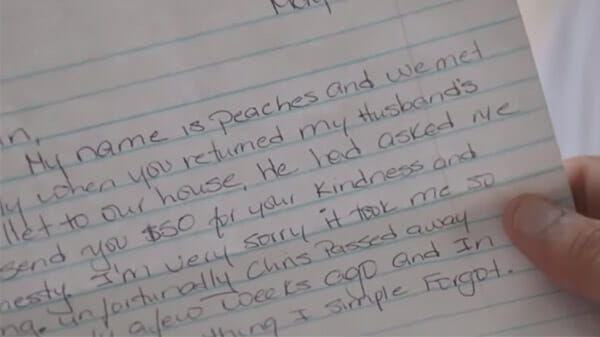 My name is Peaches and we met
when you returned my Husband's
to our house. He had asked me
send you $50 for your kindness and
I'm very sorry it took me so
unfortunally Chris Passed away
a few weeks ago and In
I simple Forgot.